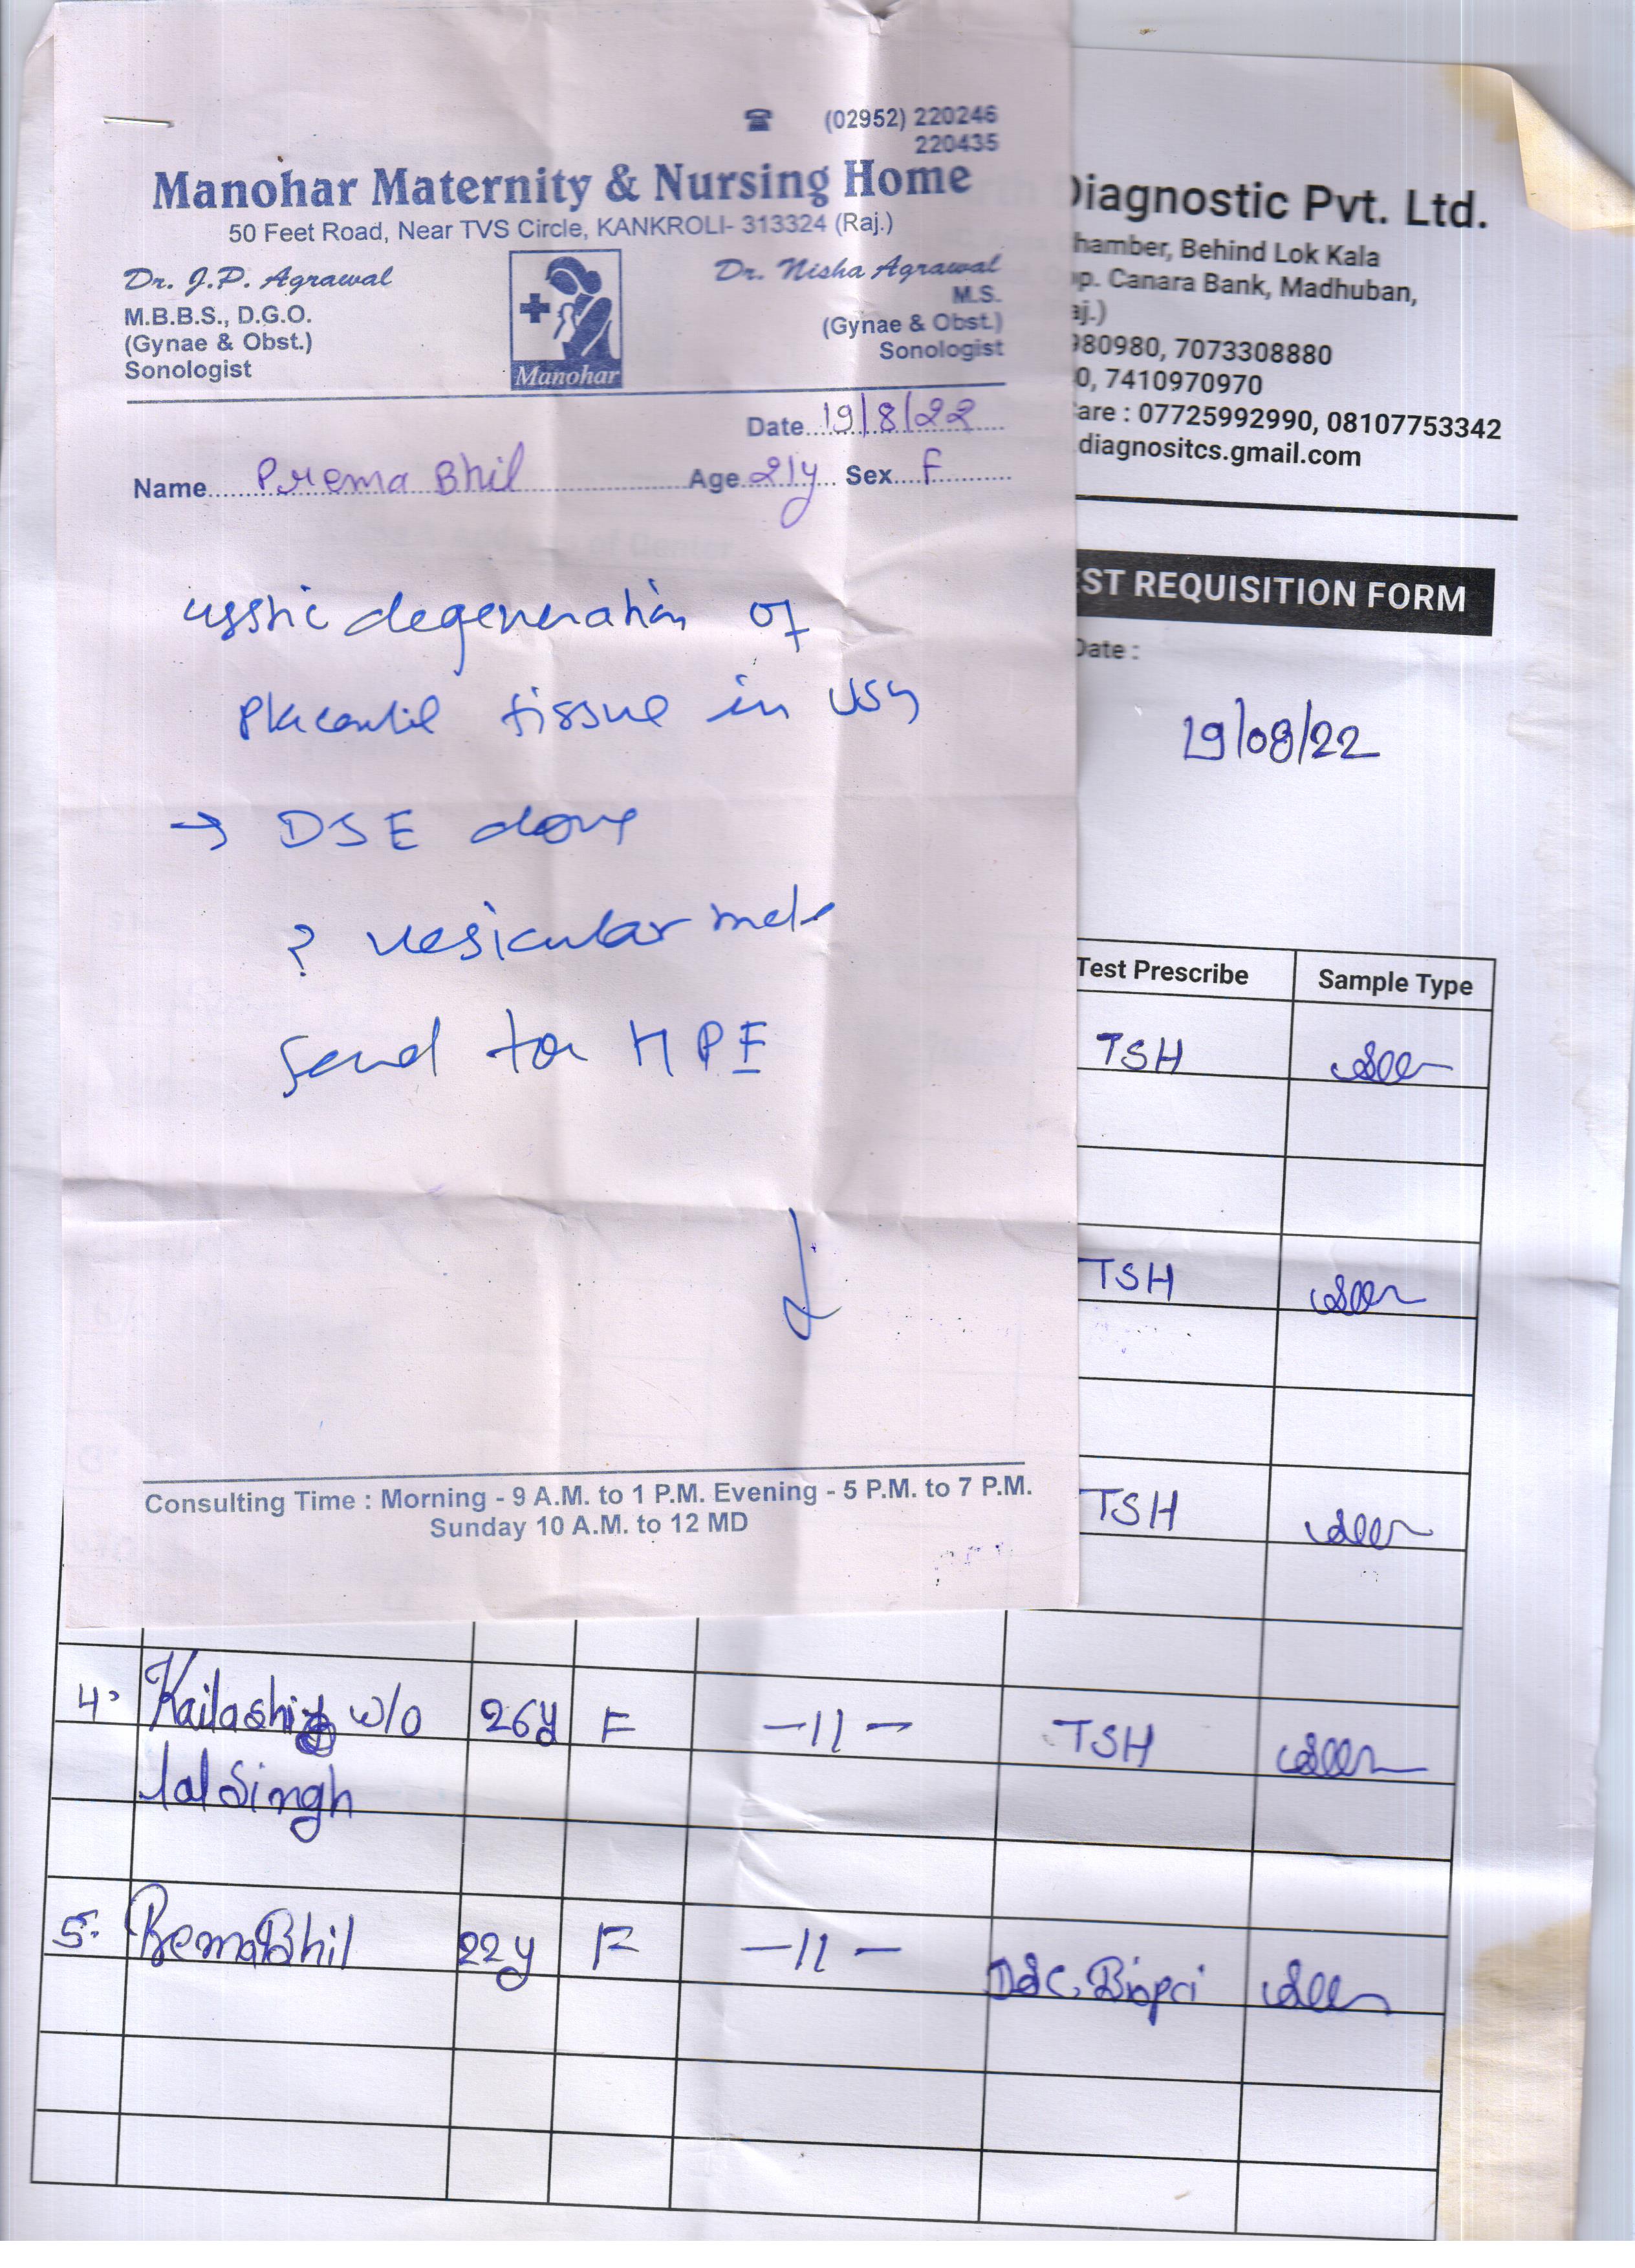 (02952) 220246
220435
Manohar Maternity & Nursing Home
50 Feet Road, Near TVS Circle, KANKROLI- 313324 (Raj.)
Dr. J.P. Agrawal
M.B.B.S., D.G.O.
(Gynae & Obst.)
Sonologist
Manohar
Dr. Nisha Agrawal
M.S.
(Gynae & Obst.)
Sonologist
Date 19/8/22
Name Prema Bhil Age 21y Sex F
cystic degeneration of
placental tissue in USG
→ DSE done
? vesicular mole
Send for HPE
Consulting Time : Morning - 9 A.M. to 1 P.M. Evening - 5 P.M. to 7 P.M.
Sunday 10 A.M. to 12 MD
Diagnostic Pvt. Ltd.
hamber, Behind Lok Kala
pp. Canara Bank, Madhuban,
aj.)
980980, 7073308880
0, 7410970970
are : 07725992990, 08107753342
diagnositcs.gmail.com
EST REQUISITION FORM
Date :
19/08/22
Test Prescribe Sample Type
TSH
TSH
TSH
4. Kailashi w/o 26y F -11- TSH
lalSingh
5. Prema Bhil 22y F -11- D&C, Biopci